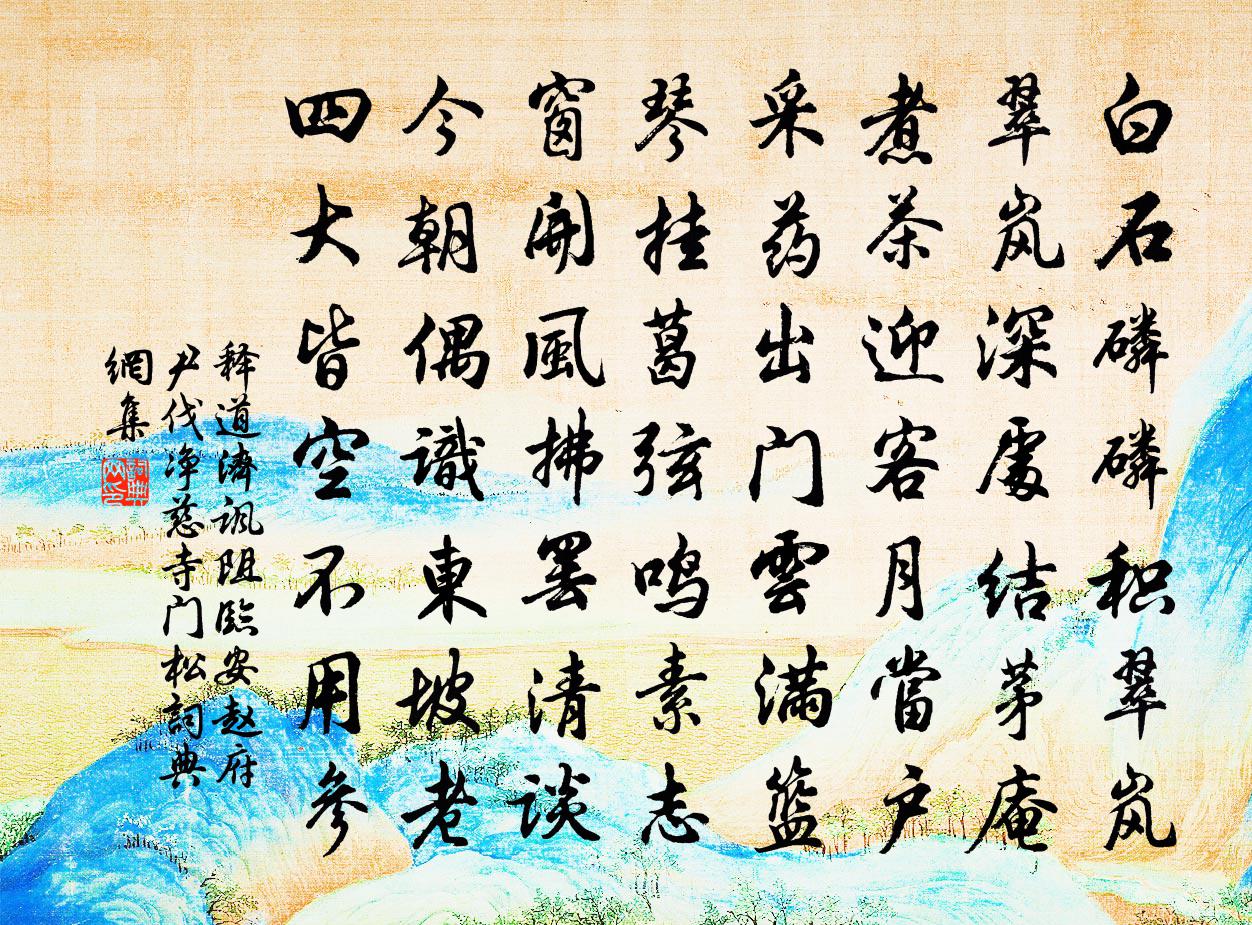 白石磷磷积翠岚
翠岚深處结茅庵
煮茶迎客月當户
采药出门雲满篮
琴挂葛弦鸣素志
窗開風拂罢清谈
今朝偶識東坡老
四大皆空不用参
释道濟讽阻臨安赵府
尹伐净慈寺门松詞典
網集